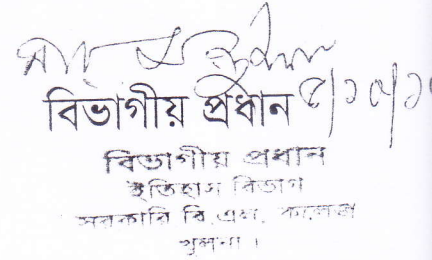 বিভাগীয় প্রধান
বিভাগীয় প্রধান
ইতিহাস বিভাগ
সরকারি বি.এল. কলেজ
খুলনা।